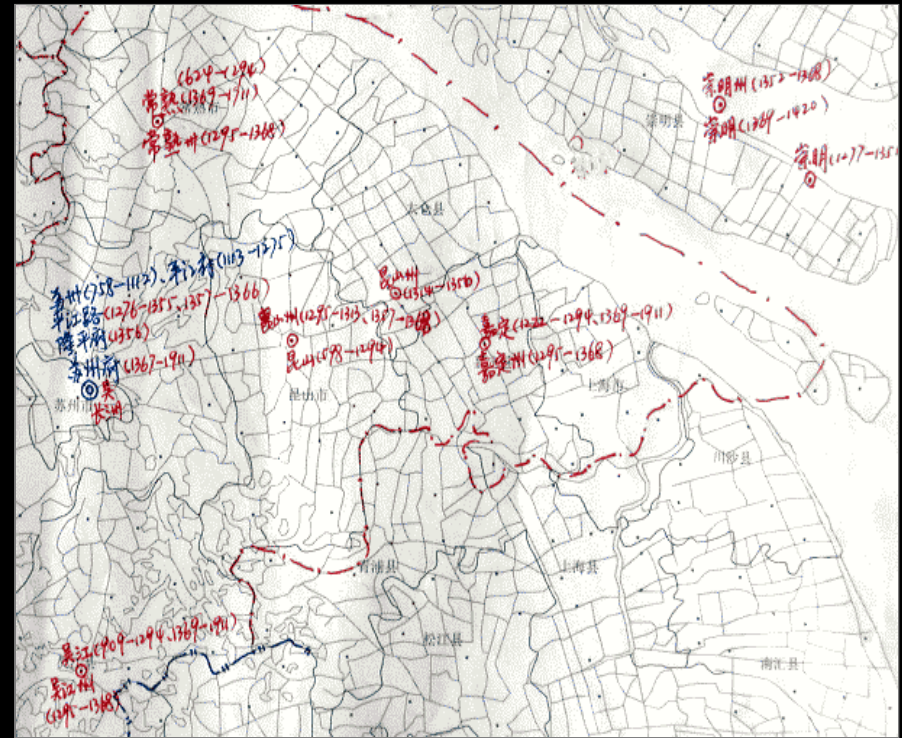 (624-1294)
常熟(1369-1911)
常熟市
常熟州(1295-1368)
崇明州(1352-1368)
崇明县
崇明(1369-1420)
崇明(1277-1351
太仓县
苏州(758-1112)、平江府(1113-1275)
平江路(1276-1355、1357-1366)
隆平府(1356)
苏州府(1367-1911)
吴
长洲
苏州市
昆山州
(1314-1356)
昆山州(1295-1313、1357-1368)
昆山(598-1294)
昆山市
嘉定(1222-1294、1369-1911)
嘉定州(1295-1368)
上海市
川沙县
青浦县
上海县
松江县
南汇县
吴江(909-1294、1369-1911)
吴江州
(1295-1368)